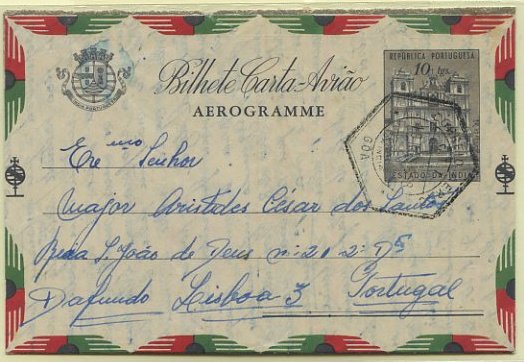 REPÚBLICA PORTUGUESA
10 tgs.
Bilhete Carta-Avião
AEROGRAMME
GOA
ESTADO DA INDIA
Exmo Senhor
Major Aristides César dos Santos
Rua S. João de Deus nº 20 2º
Dafundo Lisboa 3 Portugal